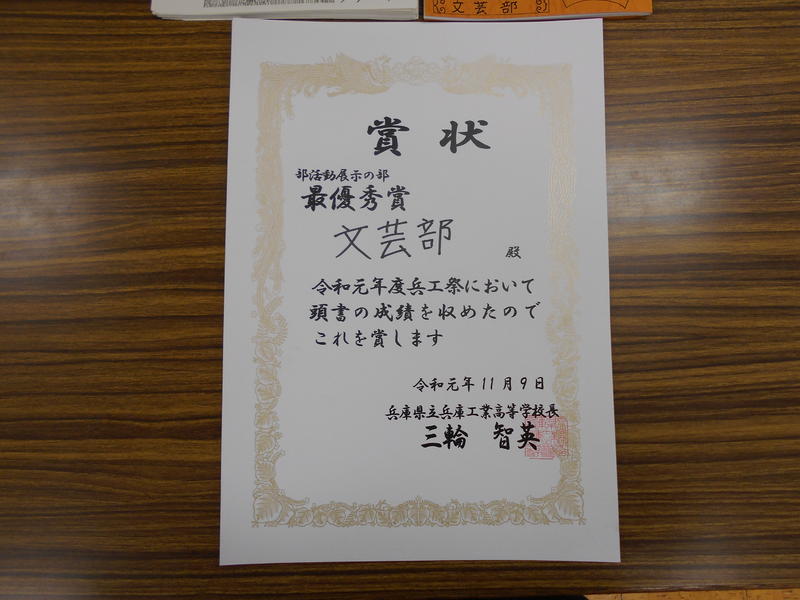 文芸部
賞状
部活動展示の部
最優秀賞
文芸部 殿
令和元年度兵工祭において
頭書の成績を収めたので
これを賞します
令和元年11月9日
兵庫県立兵庫工業高等学校長
三輪 智英